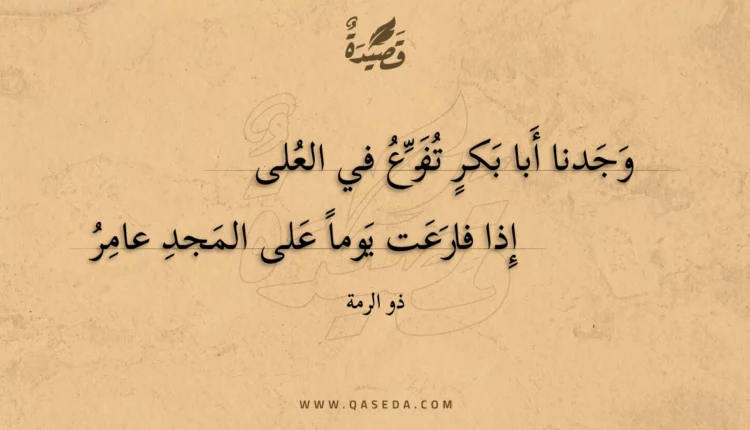 قَصِيْدَةٌ
وَجَدنا أَبا بَكرٍ تُفَوِّعُ في العُلى
إِذا فارَعَت يَوماً عَلى المَجدِ عامِرُ
ذو الرمة
WWW.QASEDA.COM